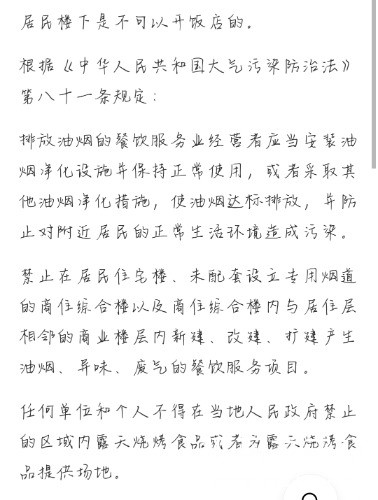 居民楼下是不可以开饭店的。
根据《中华人民共和国大气污染防治法》
第八十一条规定：
排放油烟的餐饮服务业经营者应当安装油
烟净化设施并保持正常使用，或者采取其
他油烟净化措施，使油烟达标排放，并防
止对附近居民的正常生活环境造成污染。
禁止在居民住宅楼、未配套设立专用烟道
的商住综合楼以及商住综合楼内与居住层
相邻的商业楼层内新建、改建、扩建产生
油烟、异味、废气的餐饮服务项目。
任何单位和个人不得在当地人民政府禁止
的区域内露天烧烤食品或者为露天烧烤食
品提供场地。